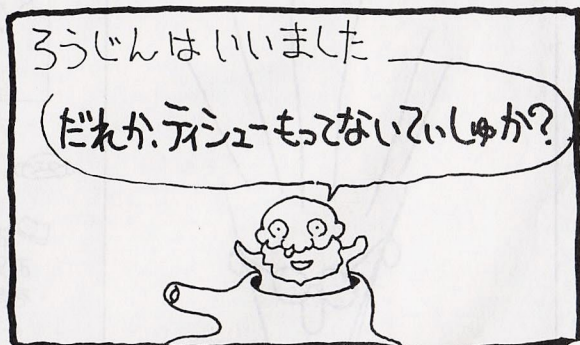 ろうじんはいいました
だれか、ティシューもってないてぃしゅか？